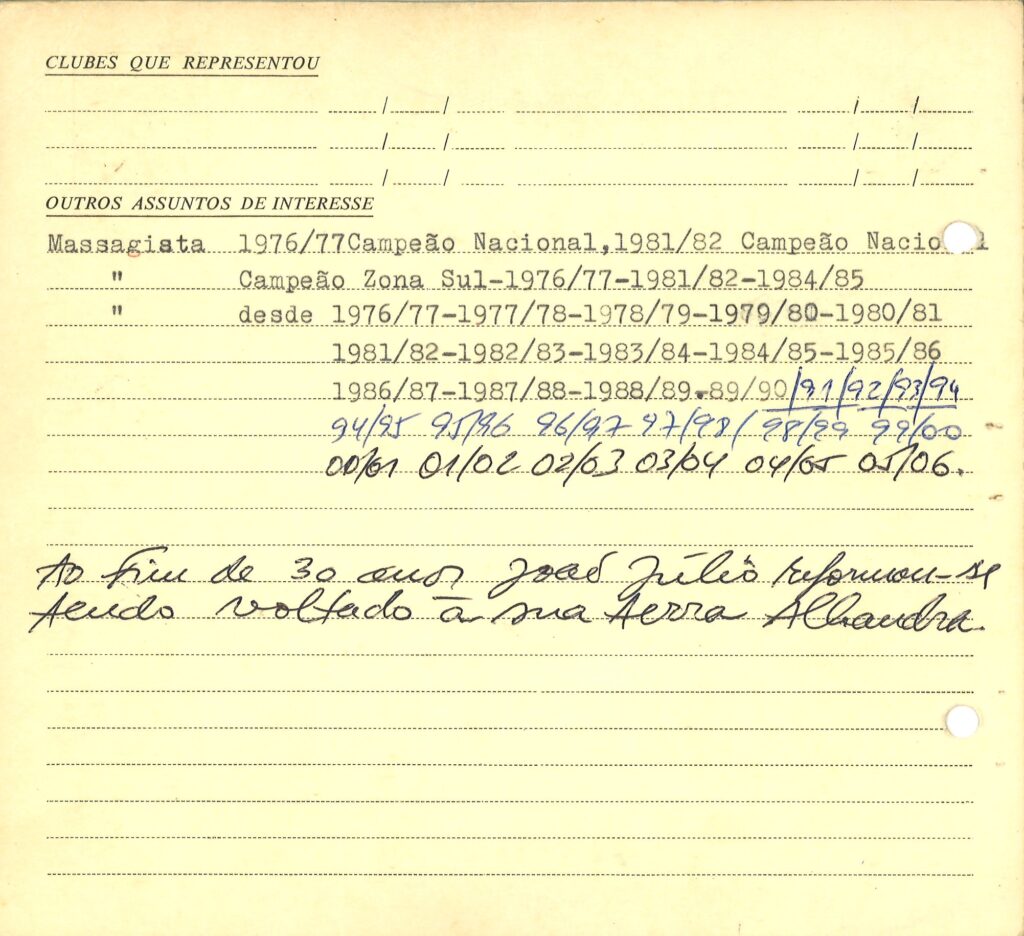 CLUBES QUE REPRESENTOU
OUTROS ASSUNTOS DE INTERESSE
Massagista 1976/77Campeão Nacional,1981/82 Campeão Nacional
" Campeão Zona Sul-1976/77-1981/82-1984/85
" desde 1976/77-1977/78-1978/79-1979/80-1980/81
1981/82-1982/83-1983/84-1984/85-1985/86
1986/87-1987/88-1988/89-89/90/91/92/93/94
94/95 95/96 96/97 97/98/ 98/99 99/00
00/01 01/02 02/03 03/04 04/05 05/06.
Ao fim de 30 anos João Júlio reformou-se
tendo voltado à sua terra Alhandra.